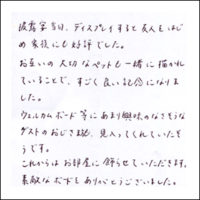 披露宴当日、ディスプレイすると友人をはじ
め家族にも好評でした。
お互いの大切なペットも一緒に描かれ
ていることで、すごく良い記念になりま
した。
ウェルカムボード等にあまり興味のなさそうな
ゲストのおじさま達、見入ってくれていたそ
うです。
これからはお部屋に飾らせていただきます。
素敵なボードをありがとうございました。